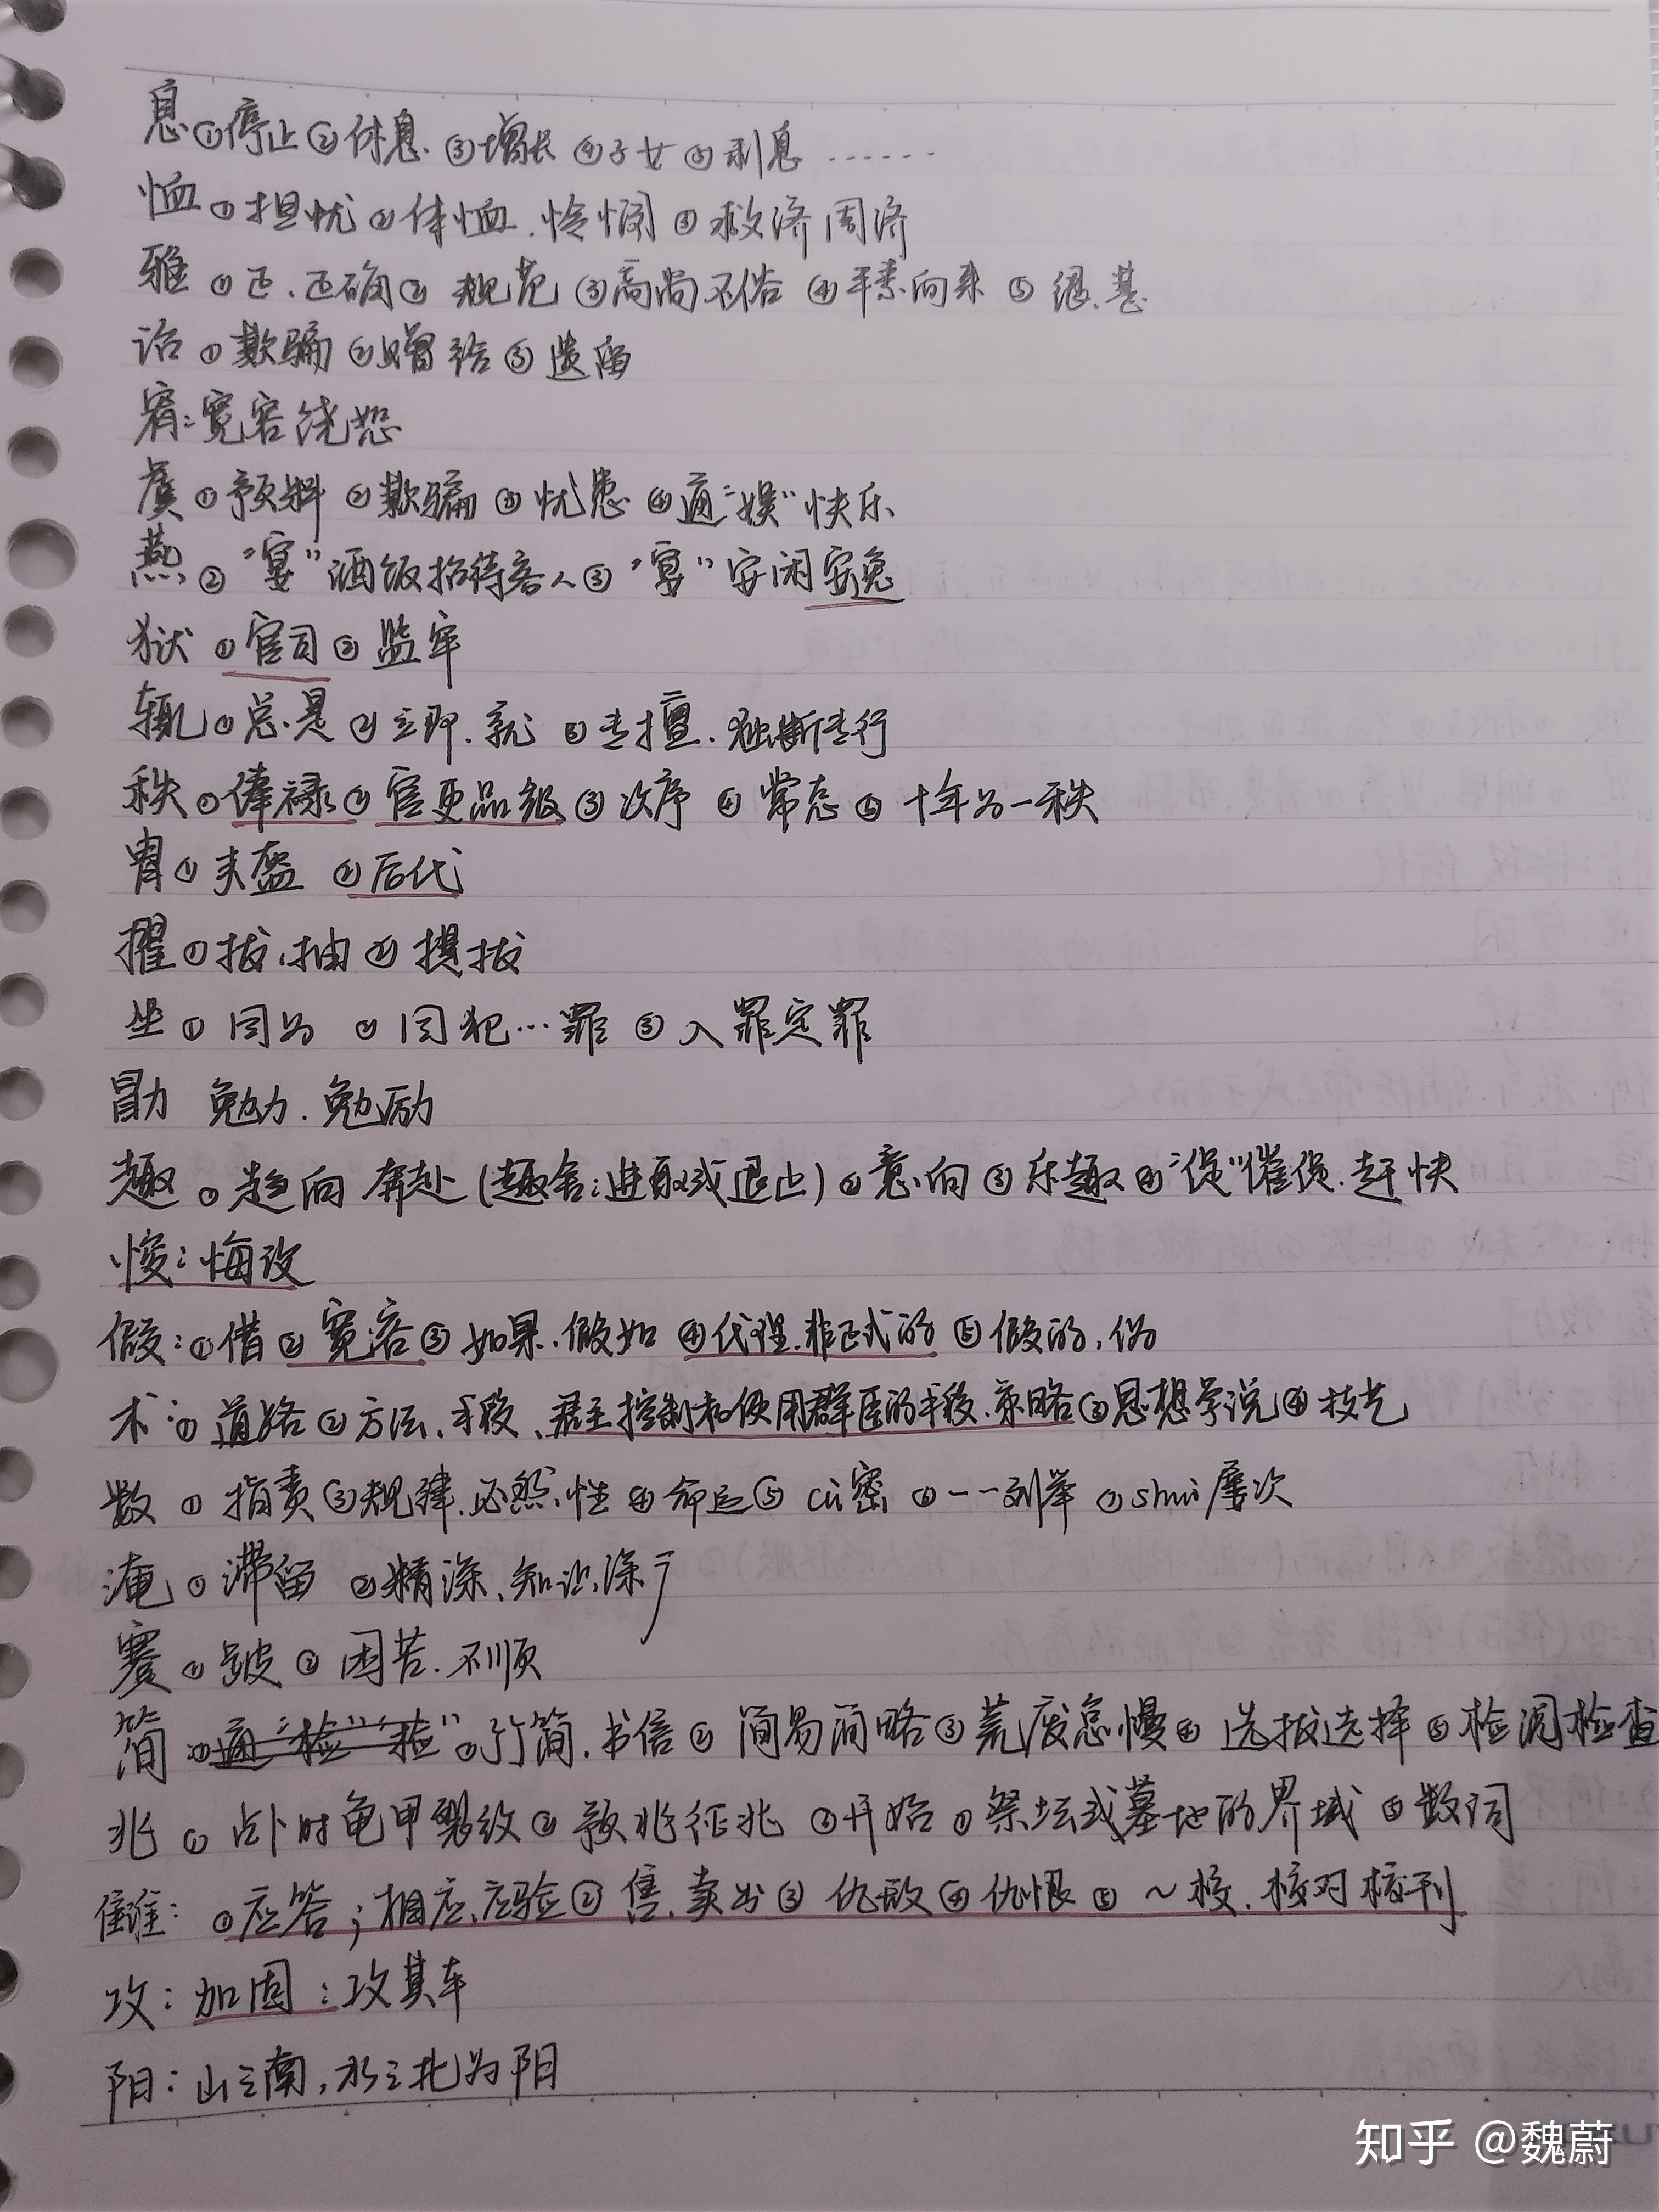 息①停止②休息.③增长④子女⑤利息……
恤①担忧②体恤.怜悯③救济周济
雅①正.正确②规范③高尚不俗④平素.向来⑤很.甚
诒①欺骗②赠给③遗留
宥:宽容饶恕
虞①预料②欺骗③忧患④通"娱"快乐
燕②"宴"酒饭招待客人③"宴"安闲安逸
狱①官司②监牢
辄①总.是②立即.就③专擅.独断专行
秩①俸禄②官吏品级③次序④常态⑤十年为一秩
胄①头盔②后代
擢①拔.抽②提拔
坐①因为②因犯…罪③入罪定罪
勖 勉力.勉励
趣①趋向 奔赴(趣舍:进取或退止)②意向③乐趣④"促"催促.赶快
悛:悔改
假:①借②宽容③如果.假如④代理.非正式的⑤假的,伪
术:①道路②方法、手段、君主控制和使用群臣的手段、策略③思想学说④技艺
数①指责③规律.必然性④命运⑤cù密⑥一一列举⑦shuò屡次
淹①滞留②精深、知识深广
蹇①跛②困苦.不顺
简①通"检""检"①竹简.书信②简易简略③荒废怠慢④选拔选择⑤检阅检查
兆①占卜时龟甲裂纹②预兆征兆③开始④祭坛或墓地的界域⑤数词
雠:①应答;相应、应验②售、卖出③仇敌④仇恨⑤~校.核对校刊
攻:加固:攻其车
阳:山之南,水之北为阳
知乎 @魏蔚